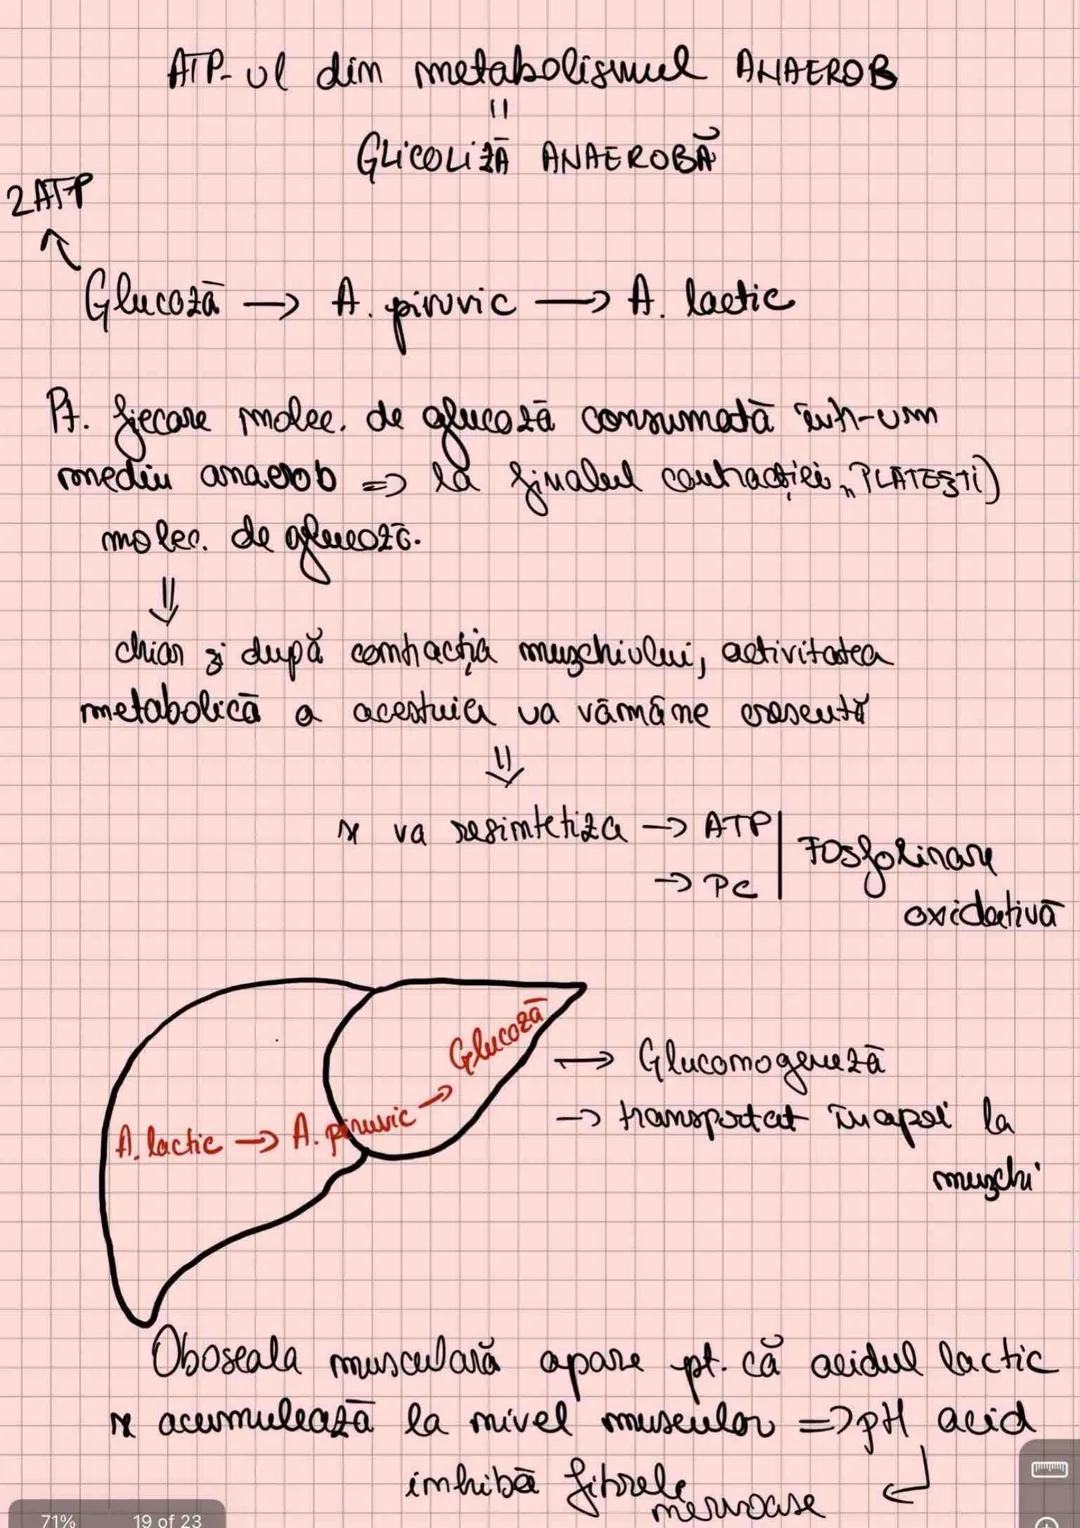 ATP-ul din metabolismul ANAEROB
=
GLICOLIZĀ ANAEROBĂ
2ATP
↖
Glucozā → A. piruvic → A. lactic
Pt. fiecare molec. de glucozā consumatā într-un
mediu anaerob => la finalul contracției „PLĂTEȘTI)
molec. de glucozā.
⇓
chiar și după contracția mușchiului, activitatea
metabolicā a acestuia va rāmâne crescută
⇓
se va resintetiza → ATP | Fosforilare
→ PC | oxidativā
A. lactic → A. piruvic → Glucozā
→ Gluconogenezā
→ transportat înapoi la
mușchi
Oboseala musculară apare pt. că acidul lactic
se acumuleazā la nivel muscular => pH acid
inhibā fibrele nervoase
71% 19 of 23